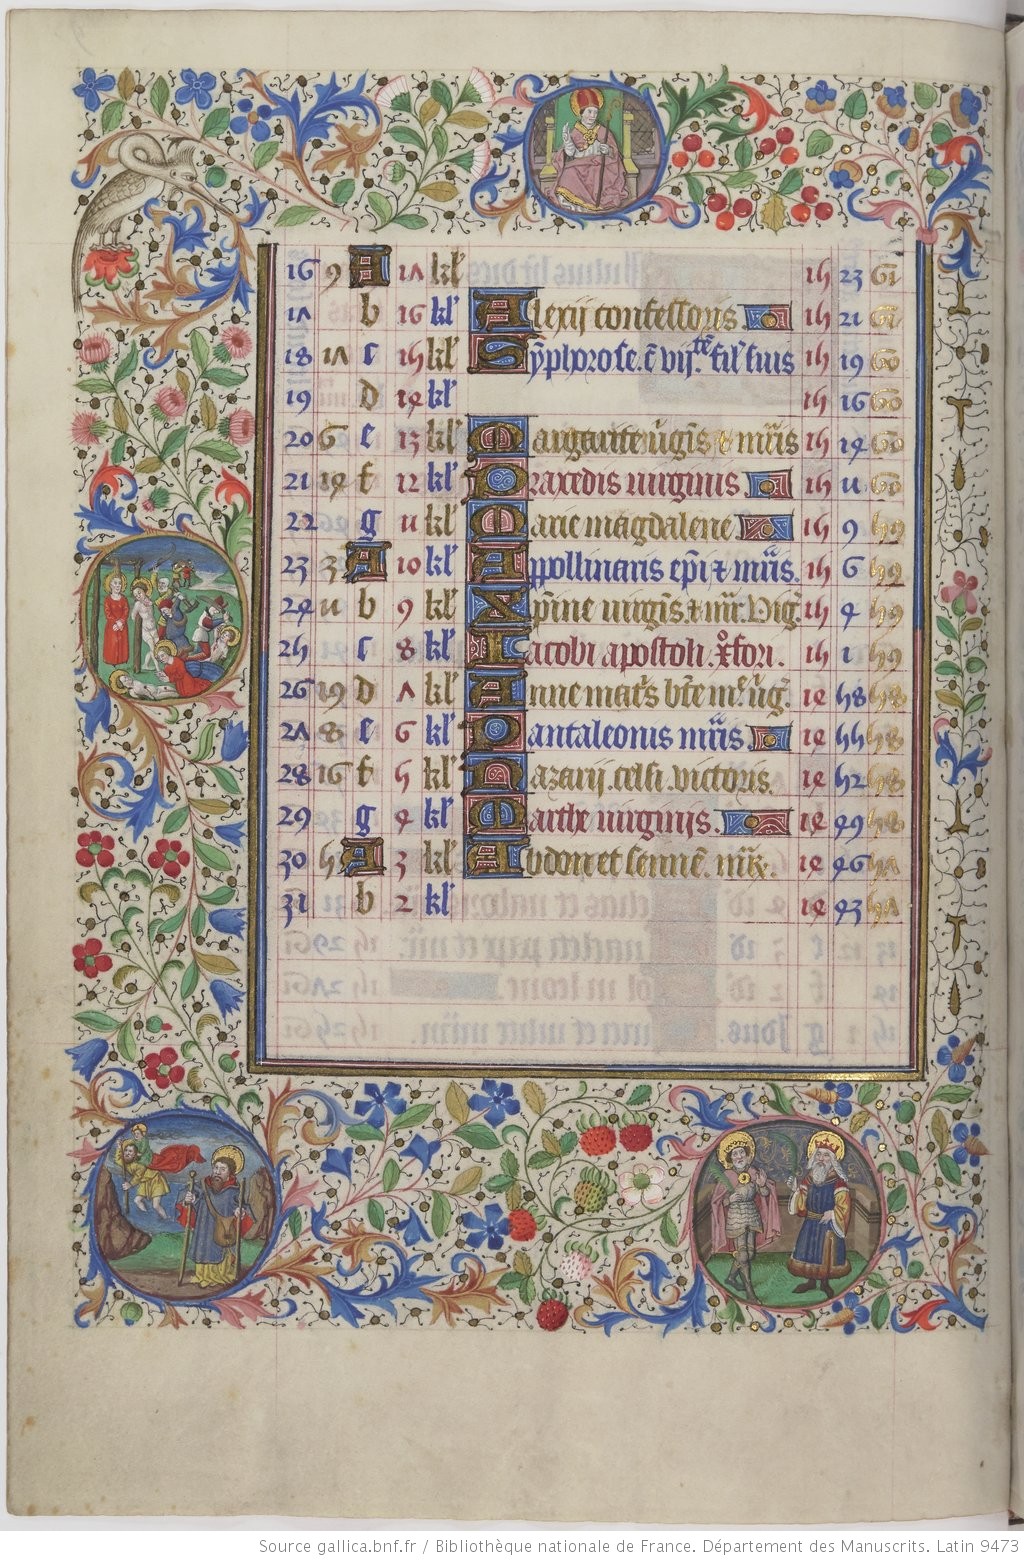 16 9 A 17 kl' 15 23 61
17 b 16 kl' Alexii confessoris. 15 21 61
18 17 c 15 kl' Sẏphorose. c̄ vij.te fil' suis 15 19 60
19 d 14 kl' 15 16 60
20 6 e 13 kl' Margarite v̄gīs & mr̄is 15 14 60
21 14 f 12 kl' Praxedis virginis 15 11 60
22 g 11 kl' Marie magdalene. 15 9 59
23 3 A 10 kl' Appollinaris ep̄i & mr̄is. 15 6 59
24 11 b 9 kl' Xp̄ine virgīs & mr̄. Vig' 15 4 59
25 c 8 kl' Iacobi apostoli. xp̄ofori. 15 1 59
26 19 d 7 kl' Anne mat's bt̄e m'. v̄g'. 14 58 58
27 8 e 6 kl' Pantaleonis mr̄is. 14 55 58
28 16 f 5 kl' Nazarij. celsi. victoris. 14 52 58
29 g 4 kl' Marthe virginis. 14 49 58
30 5 A 3 kl' Abdon et sennē. mr̄. 14 46 57
31 b 2 kl' 14 43 57
Source gallica.bnf.fr / Bibliothèque nationale de France. Département des Manuscrits. Latin 9473